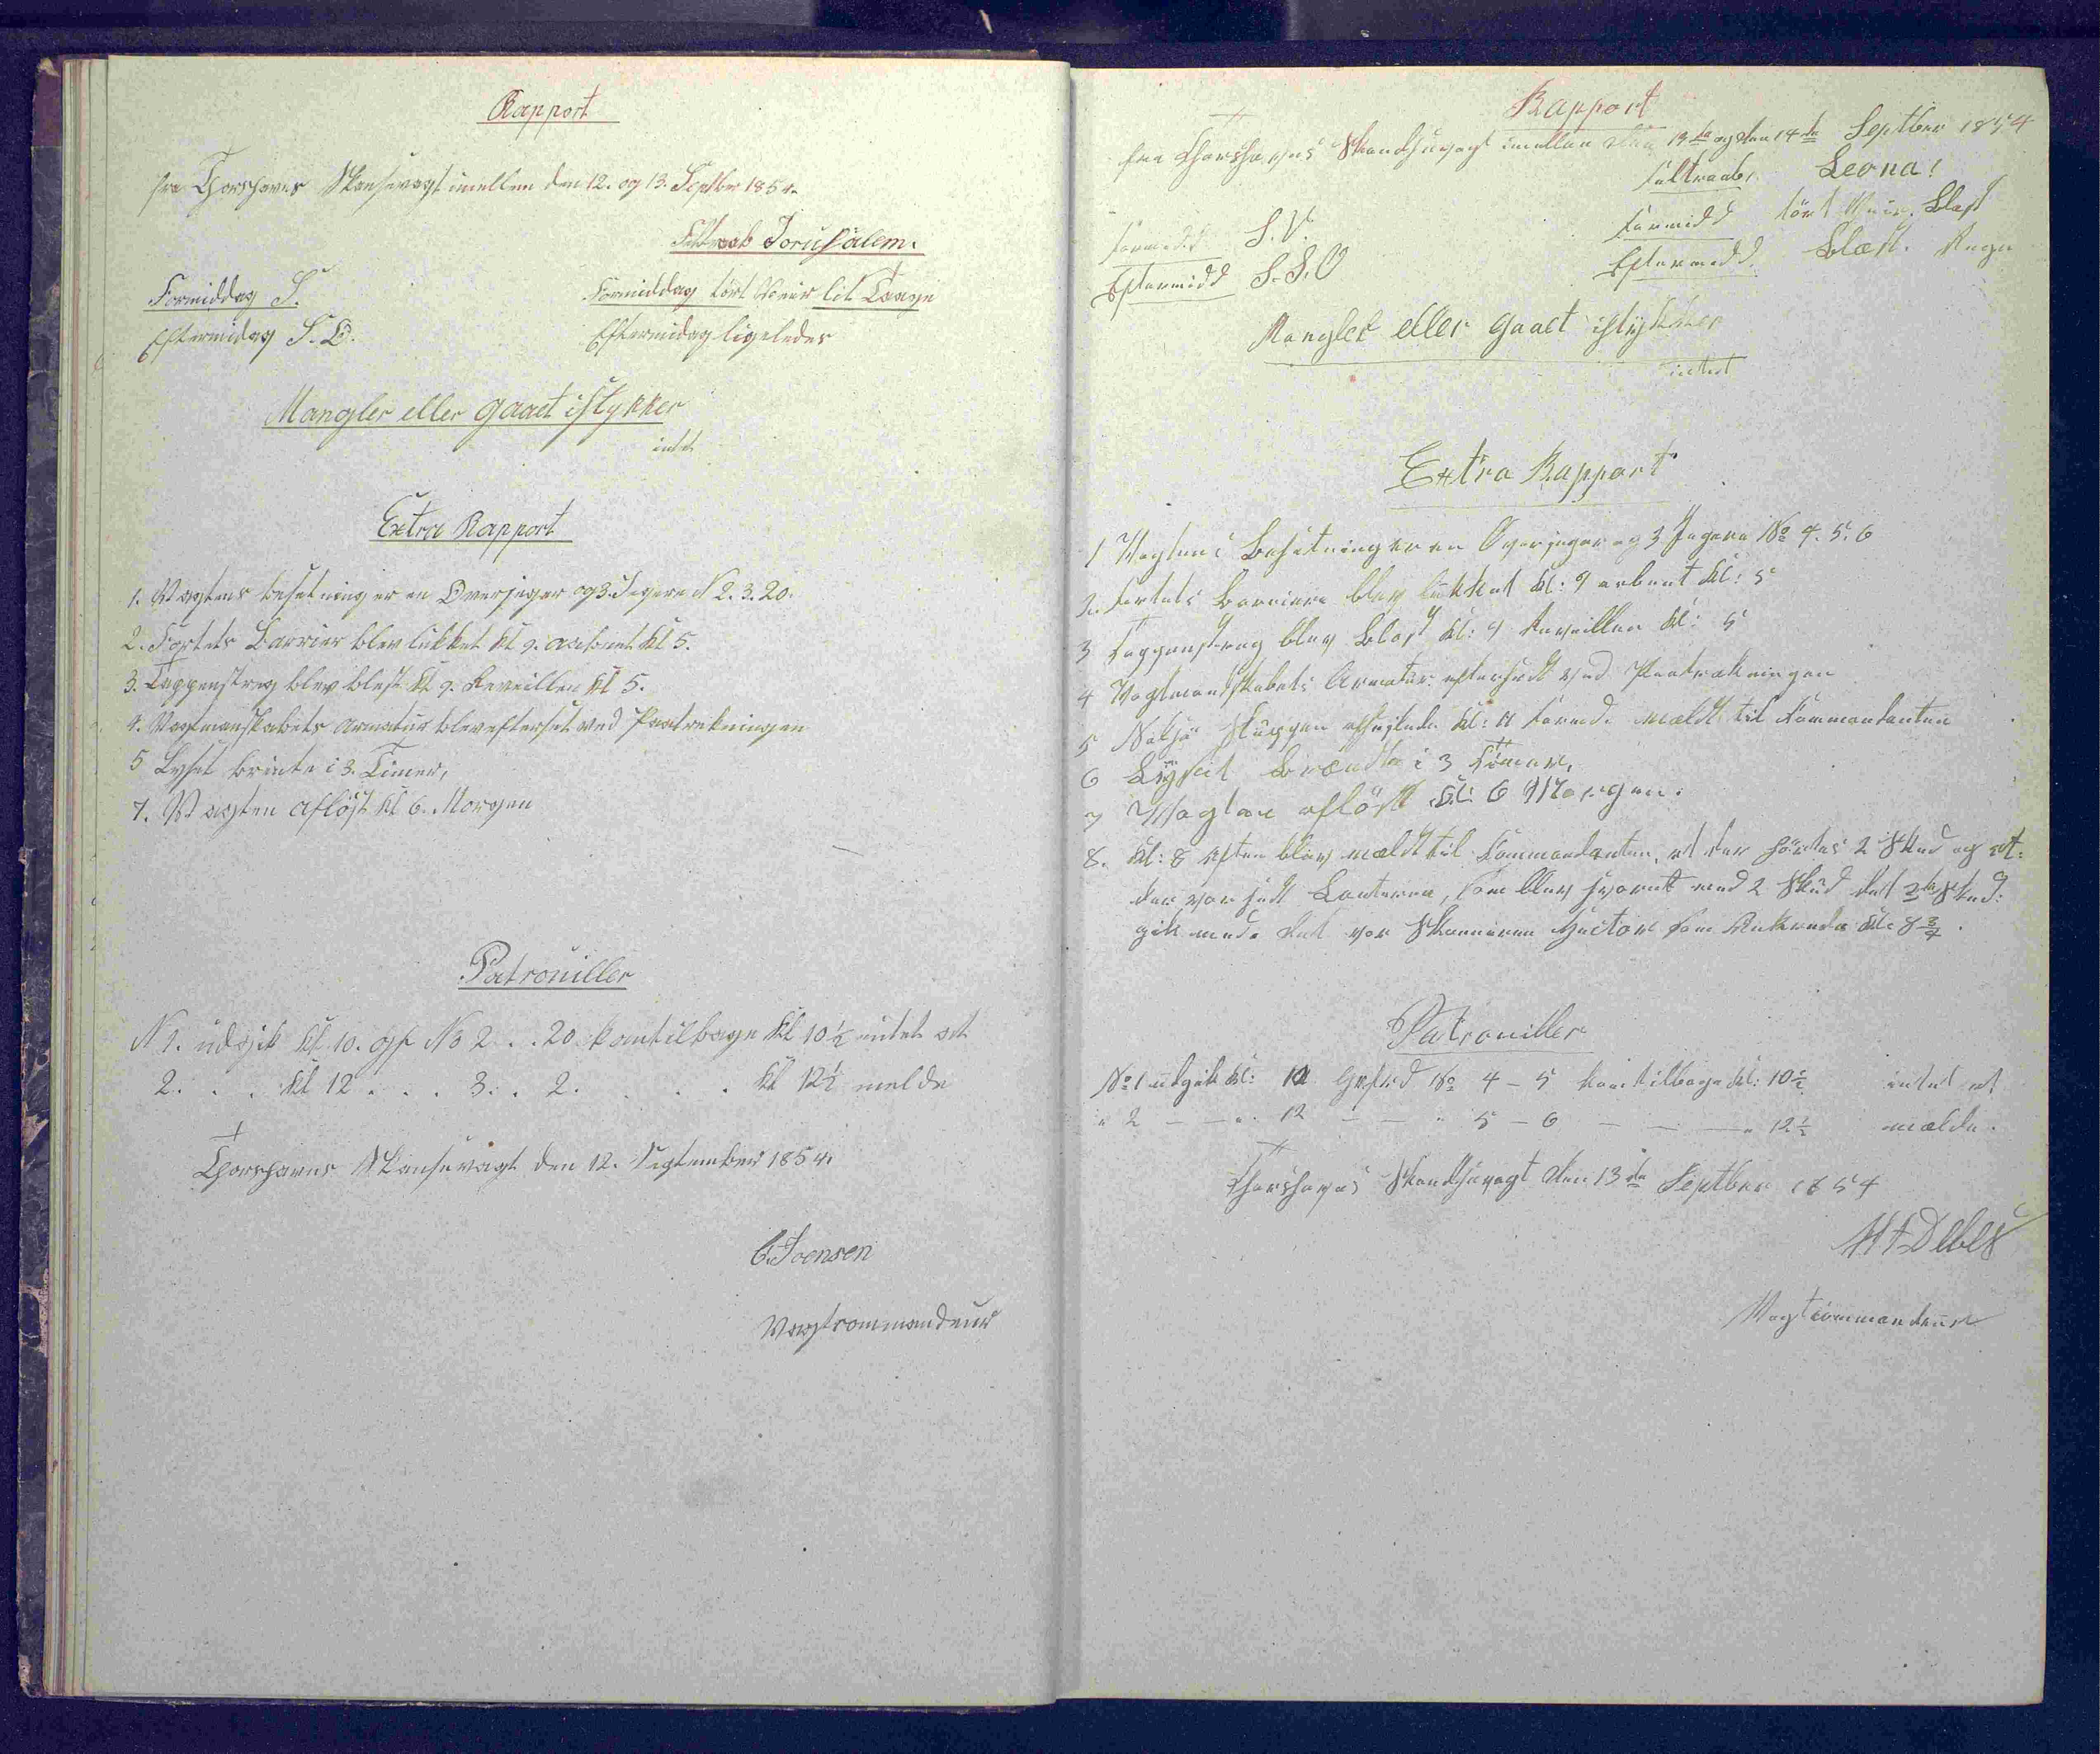 Rapport
fra Thorshavns Skansevagt imellem den 12. og 13. Septber 1854.
Feltraab Jorusalem.
Formiddag S.
Formiddag tört Veir lit Taage
Eftermidag S.O.
Eftermidag ligeledes
Mangler eller gaaet istykker
intet
Extra Rapport
1. Vagtens besetning er en Overjæger og 3 Jegere N 2. 3. 20.
2. Fortets Barrier blev lukket Kl 9. aabnet Kl 5.
3. Tappenstreg blev blest Kl 9. Reveillen Kl 5.
4. Vagtmanskabets Armatur blev efterset ved Paatrekningen
5 Lyset brente i 3. Timer,
7. Vagten aflöst Kl 6. Morgen
Patrouiller
N 1. udgik Kl 10. Gf No 2 . . 20 kom tilbage Kl 10½ intet at
2. . . Kl 12 . . . 3. . 2. . . . Kl 12½ melde
Thorshavns Skansevagt den 12. September 1854.
C. Joensen
Vagtcommandeur
Rapport
fra Thorshavns Skandsevagt imellem den 13de og den 14de Septber 1854
Feltraab, Leona!
Formidd S.V.
Formidd tört Veir. Blæst
Eftermidd S.S.O
Eftermidd. Blæst. Regn
Mangler eller gaaet istykker
intet
Extra Rapport
1 Vagtens Besetning er en Overjæger og 3 Jægere No 4. 5. 6
2. Fortets Barriere blev lukket Kl: 9 aabnet Kl: 5
3 Tappenstreg blev Blæst Kl: 9 Reveillen Kl: 5
4 Vagtmandskabets Armatur efterseet ved Paatrækningen
5 Skuppen afseglede Kl: 11 Formd. meldt til Kommandanten
6 Lyset Brændte i 3 Timer,
7 Vagten aflöst Kl: 6 Morgen.
8. Kl: 8 Aften blev meldt til Kommandanten, at der hörtes 2 Skud og at:
der var seet Lanterne, som blev svaret med 2 Skud det 2de Skud:
gik med. Det var Skonneren Hector som Ankrede Kl: 8¾.
Patrouiller
No 1 udgik Kl: 10 Gefred No 4 – 5 kom tilbage Kl: 10½ intet at
" 2 – – " 12 – – " 5 – 6 – – – " 12½ melde.
Thorshavns Skandsevagt den 13de Septber 1854
Debes
Vagtcommandeur